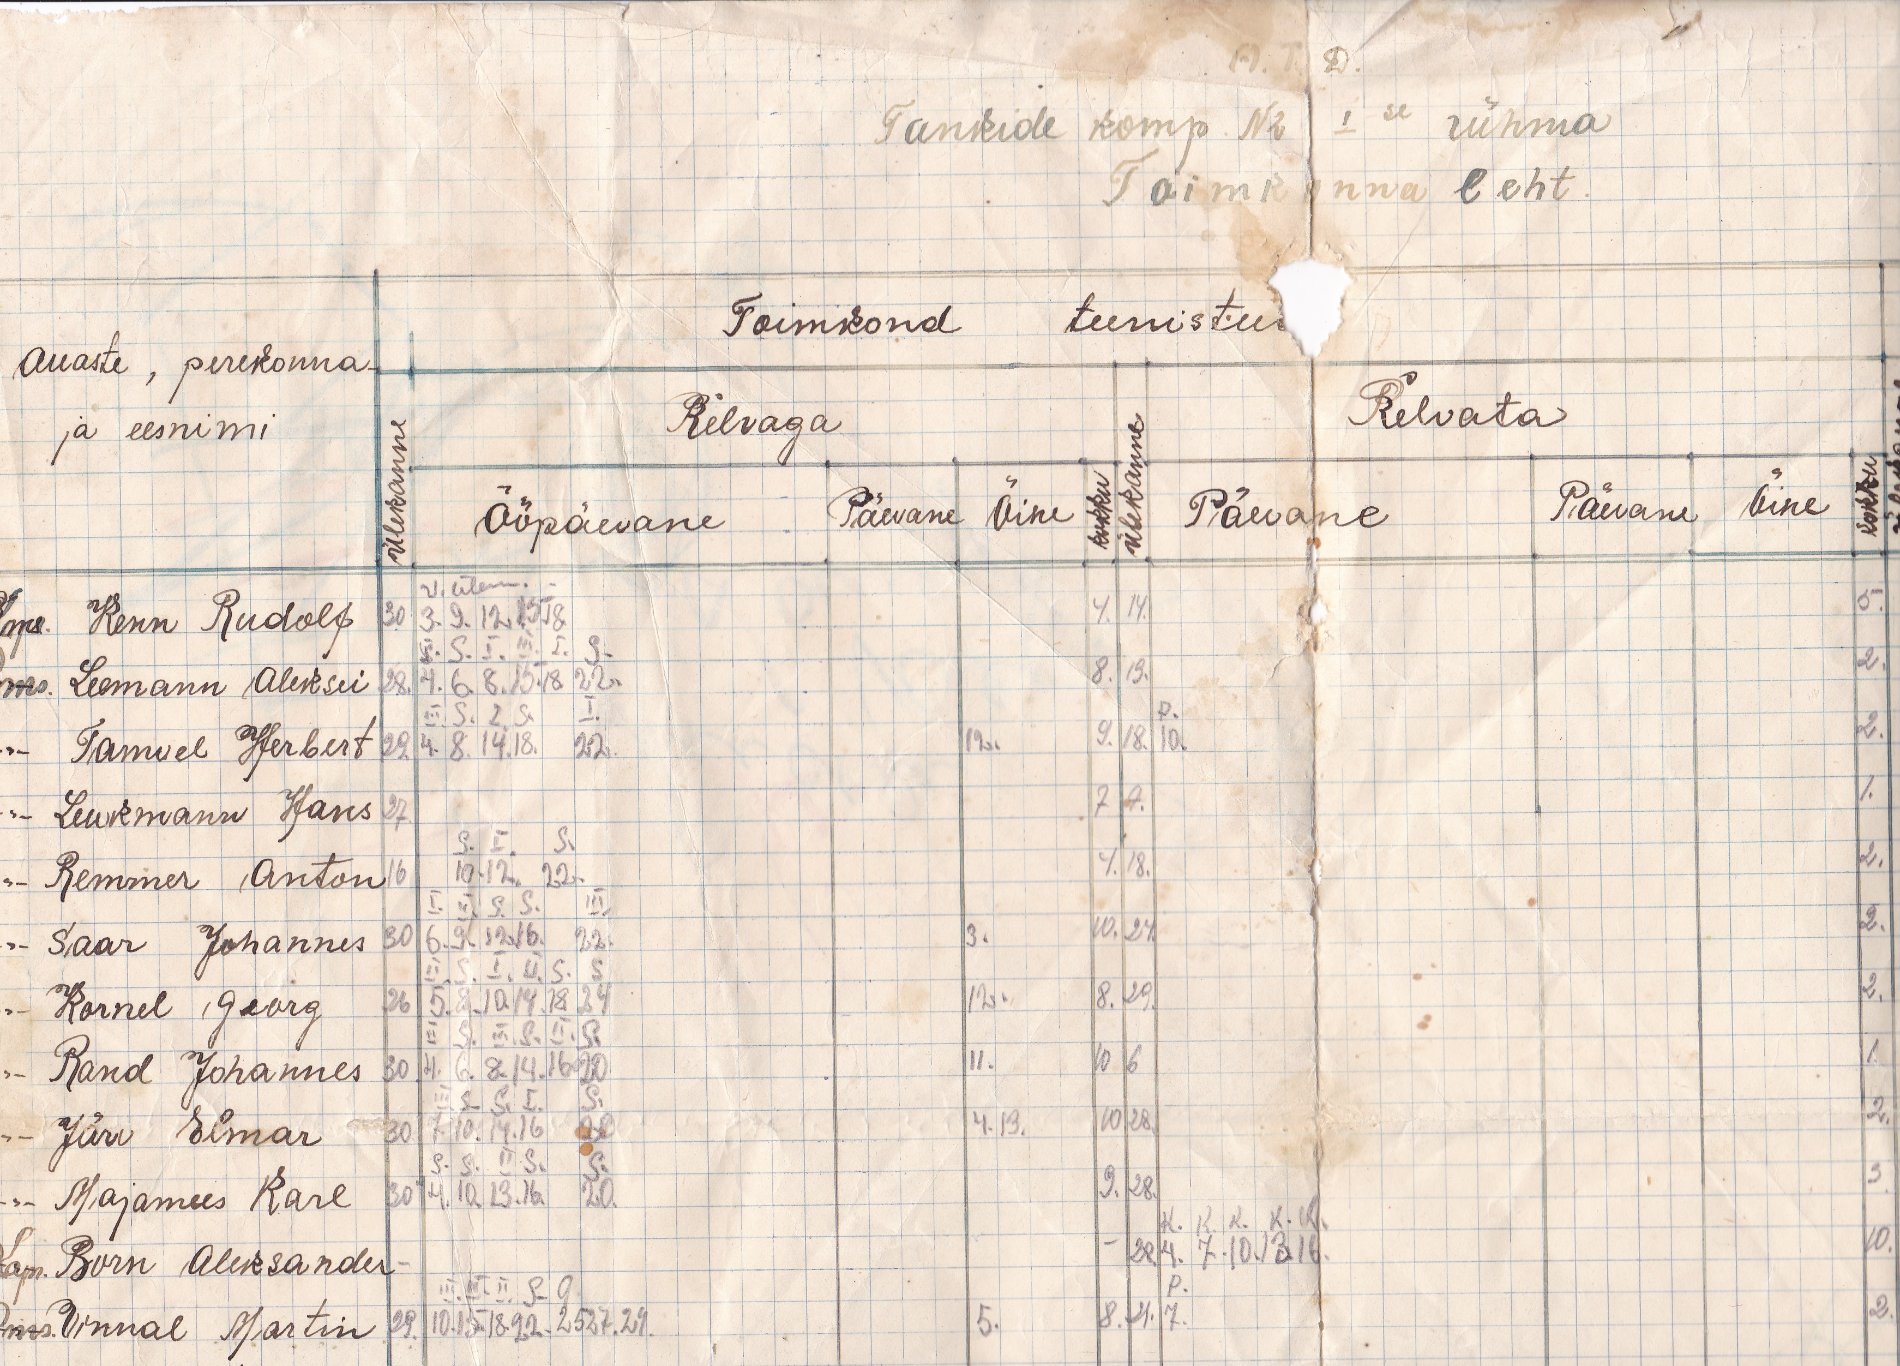 A. T. D.
Tankide komp. Nr I se rühma
Toimkonna leht.
Toimkond teenistu
Auaste, perekonna-
ja eesnimi
Ülekanne
Relvaga
kokku
Ülekanne
Relvata
kokku
Ööpäevane
Päevane
Öine
Päevane
Päevane
Öine
Kenn Rudolf 30 3. 9. 12. 15. 18. 4. 14. 5.
II. S. I. III. I. S.
Leomann Aleksei 28. 4. 6. 8. 15. 18 22. 8. 13. 2.
III. S. I. S. I. P.
-"- Tamvel Herbert 29 4. 8. 14. 18. 22. 12. 9. 18. 10. 2.
-"- Leukmann Hans 27 7 1.
S. I. S.
-"- Remmer Anton 16 10. 12. 22. 4. 18. 2.
I. II. S. S. III.
-"- Saar Johannes 30 6. 9. 12. 16. 22. 3. 10. 24 2.
III. S. I. II. S. S
-"- Kornel Georg 26 5. 8. 10. 14. 18 24 12. 8. 29. 2.
III S. III. S. II. S.
-"- Rand Johannes 30 4. 6. 8. 14. 16 20 11. 10 6 1.
III. S. S. I. S.
-"- Järv Elmar 30 7. 10. 14. 16 4. 13. 10 28. 2.
S. S. II S. S.
-"- Majamees Karl 30 4. 10. 13. 16. 20. 9. 28. 3.
K. K. K. K. K.
Kapr. Born Aleksander - - 28 4. 7. 10. 13. 16. 10.
III. III. II. S. P.
Vinnal Martin 29. 10. 15. 18. 22. 25 27. 29. 5. 8. 4. 7. 2.